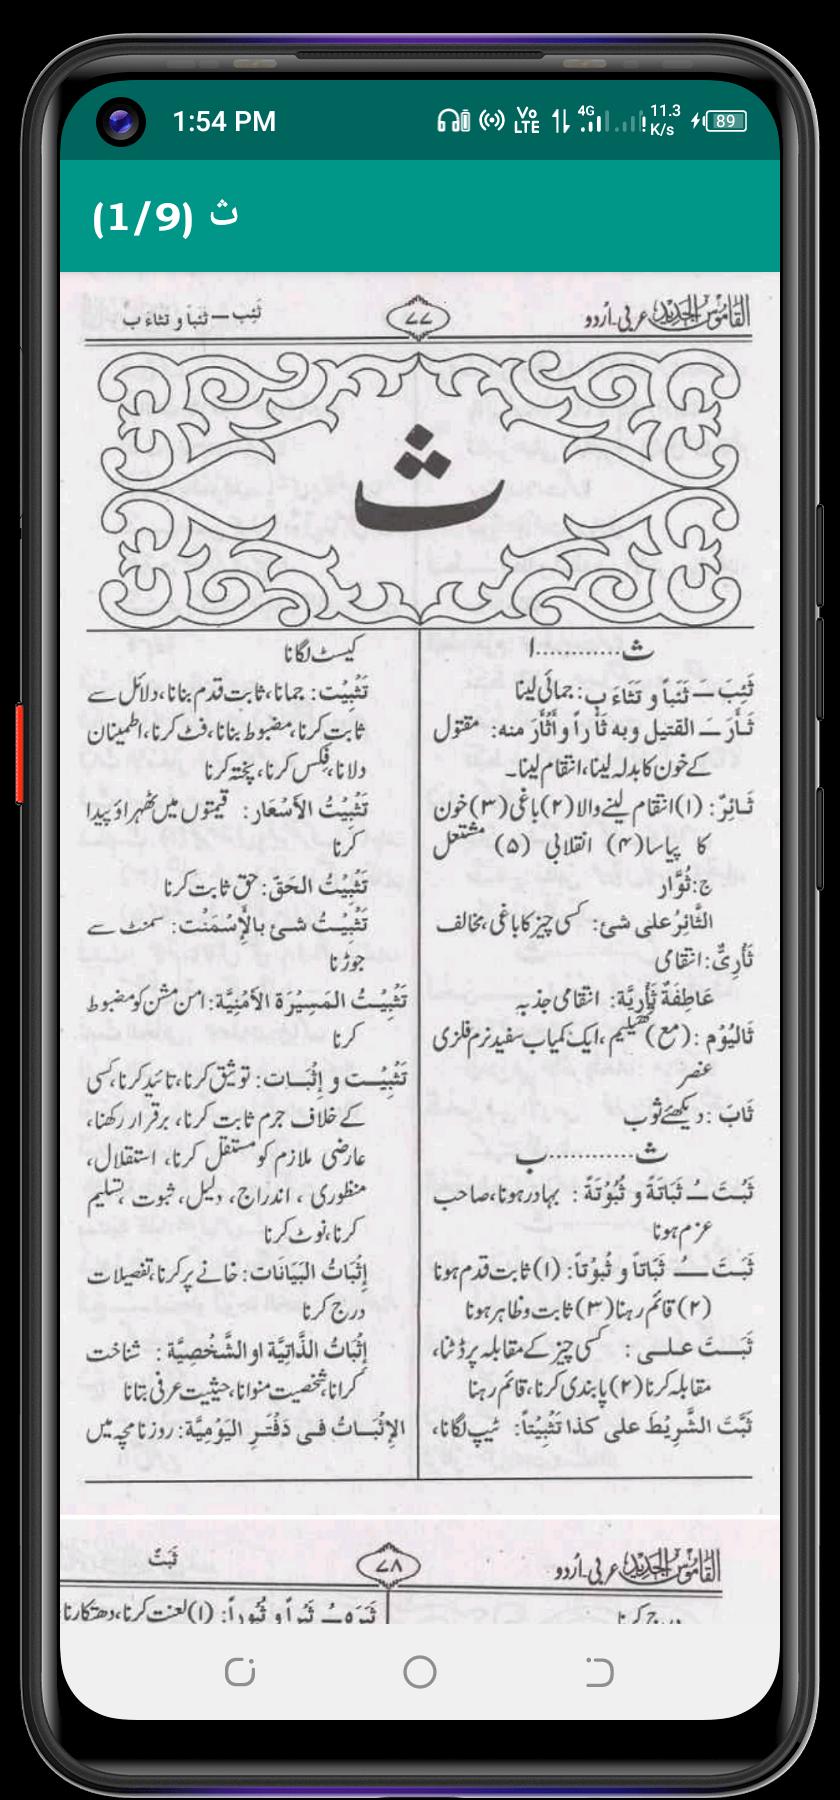 1:54 PM
Vo LTE
4G
11.3 K/s
89
ث (1/9)
القاموس الجدید عربی۔اُردو
۷۷
ثَئِب — ثَنَبا و تثاءَ ب
ث
ث............ا
ثَئِبَ ــَ ثَنَباً و تَثَاءَ بِ: جمائی لینا
ثَـأَرَ ــَ القتیل وبه ثَاْراً و أَثْأَرَ منه: مقتول
کے خون کا بدلہ لینا، انتقام لینا۔
ثَـائِرٌ: (۱) انتقام لینے والا (۲) باغی (۳) خون
کا پیاسا (۴) انقلابی (۵) مشتعل
ج: ثُوَّار
الثَّائِرُ علی شئ: کسی چیز کا باغی، مخالف
ثَأْرِیٌّ: انتقامی
عَاطِفَةٌ ثَأْرِیَّة: انتقامی جذبہ
ثَالیُوْم: (مع) تھیلیم، ایک کمیاب سفید نرم فلزی
عنصر
ثَابَ: دیکھئے ثوب
ث............ب
ثَبُتَ ــُ ثَبَاتَةً و ثُبُوْتَةً: بہادر ہونا، صاحب
عزم ہونا
ثَبَـتَ ــُ ثَبَاتاً و ثُبُوْتاً: (۱) ثابت قدم ہونا
(۲) قائم رہنا (۳) ثابت و ظاہر ہونا
ثَبَـــتَ علـــی: کسی چیز کے مقابلہ پر ڈٹنا،
مقابلہ کرنا (۲) پابندی کرنا، قائم رہنا
ثَبَّتَ الشَّرِیْطَ علی کذا تَثْبِیْتاً: ٹیپ لگانا،
کیسٹ لگانا
تَثْبِیْت: جمانا، ثابت قدم بنانا، دلائل سے
ثابت کرنا، مضبوط بنانا، فٹ کرنا، اطمینان
دلانا، فِکس کرنا، پختہ کرنا
تَثْبِیْتُ الأَسْعَار: قیمتوں میں ٹھہراؤ پیدا
کرنا
تَثْبِیْتُ الحَق: حق ثابت کرنا
تَثْبِیْـتُ شیٔ بالإِسْمَنْت: سمنٹ سے
جوڑنا
تَثْبِیْـتُ المَسِیْرَة الأَمْنِیَّة: امن مشن کو مضبوط
کرنا
تَثْبِیْـت و إثْبَـات: توثیق کرنا، تائید کرنا، کسی
کے خلاف جرم ثابت کرنا، برقرار رکھنا،
عارضی ملازم کو مستقل کرنا، استقلال،
منظوری، اندراج، دلیل، ثبوت، تسلیم
کرنا، نوٹ کرنا
إثْبَاتُ البَیَانَات: خانے پر کرنا، تفصیلات
درج کرنا
إثْبَاتُ الذَّاتِیَّة او الشَّخْصِیَّة: شناخت
کرانا، شخصیت منوانا، حیثیت عرفی بتانا
الإِثْبَـــاتُ فـی دَفْتَـرِ الیَوْمِیَّة: روزنامچہ میں
القاموس الجدید عربی۔اُردو
۷۸
ثَبَتَ
درج کرنا
ثَبَرَهُ ــُ ثَبْراً و ثُبُوراً: (۱) لعنت کرنا، دھتکارنا